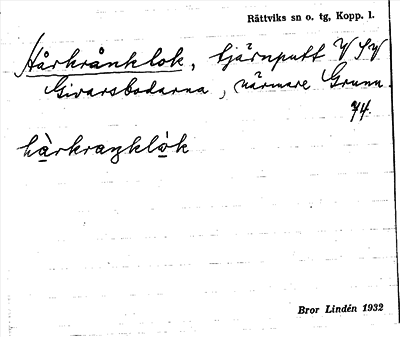 Rättviks sn o. tg, Kopp. l.
Hårkrånklok, tjärnputt V S V
Givarsbodarna, närmare Grunn.
74.
hàrkraŋklòk
Bror Lindén 1932